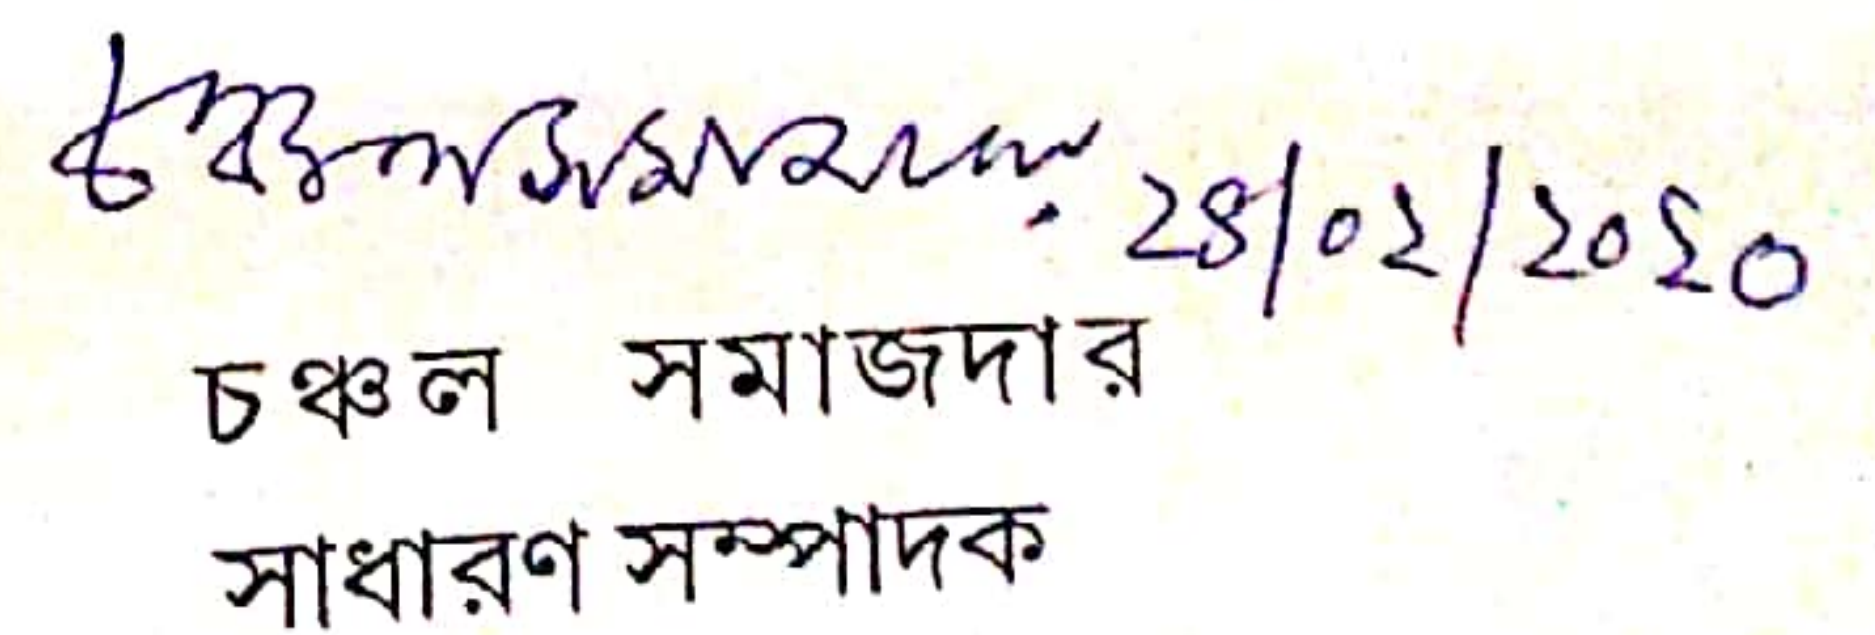 চঞ্চল সমাজদার ২৪/০২/২০২০
চঞ্চল সমাজদার
সাধারণ সম্পাদক